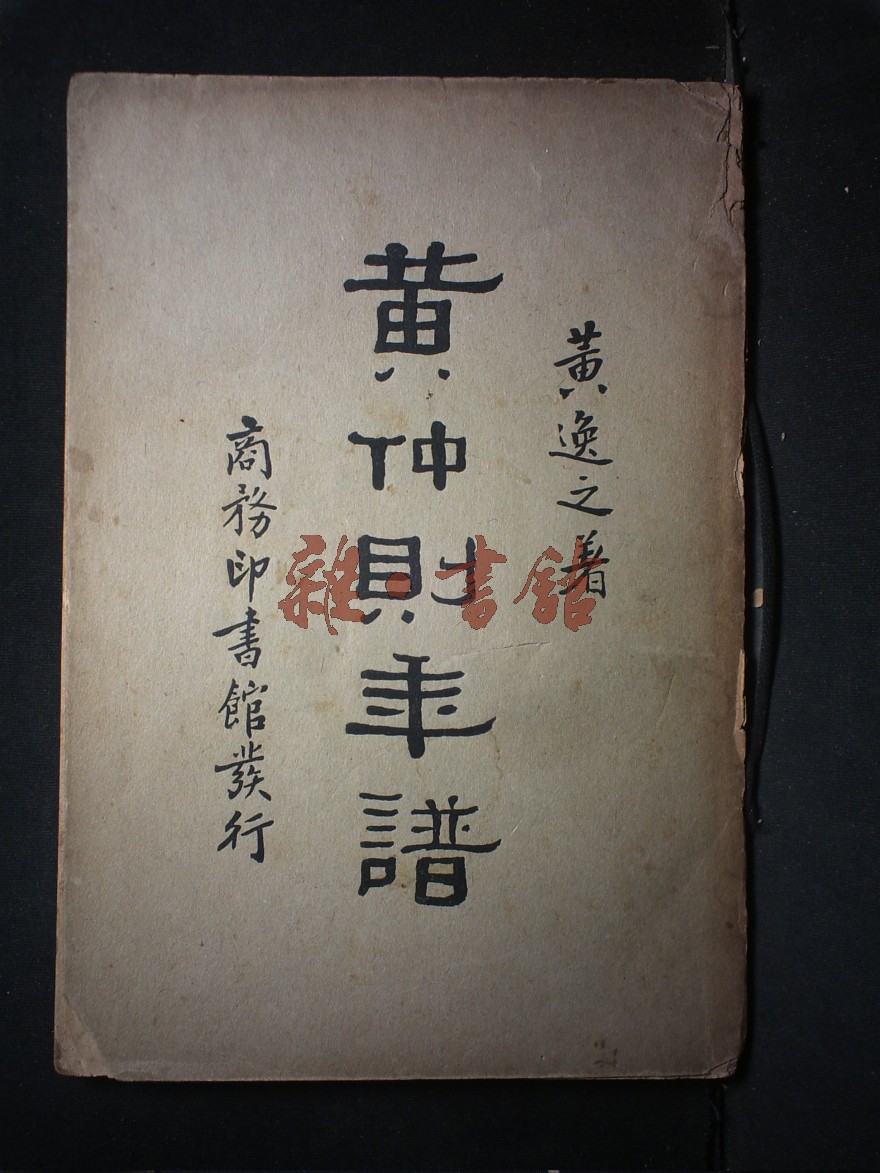 黃逸之著
黃仲則年譜
商務印書館發行
雜·書館